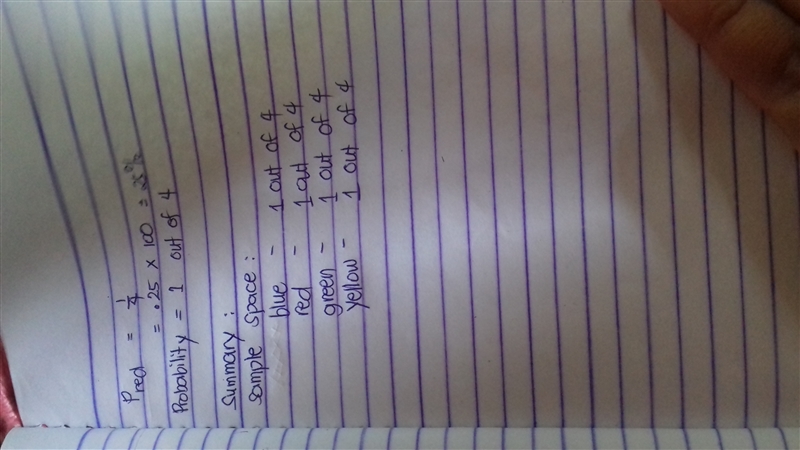 Pred = 1/4
= .25 x 100 = 25%
Probability = 1 out of 4
Summary:
Sample Space:
blue - 1 out of 4
red - 1 out of 4
green - 1 out of 4
yellow - 1 out of 4